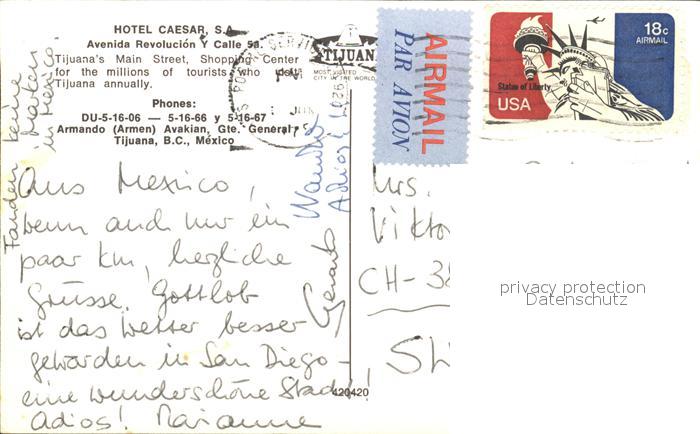 HOTEL CAESAR, S.A.
Avenida Revolución Y Calle 5a.
Tijuana's Main Street, Shopping Center
for the millions of tourists who visit
Tijuana annually.
Phones:
DU-5-16-06 — 5-16-66 y 5-16-67
Armando (Armen) Avakian, Gte. General
Tijuana, B.C., México
Fanden keine
Marken
in Mexico
Aus Mexico,
wenn auch nur ein
paar km, herzliche
Grüsse. Gottlob
ist das Wetter besser
geworden in San Diego –
eine wunderschöne Stadt!
Adios! Marianne
Adios
Gerardo
TIJUANA
MOST VISITED
CITY IN THE WORLD
AIRMAIL
PAR AVION
18c
AIRMAIL
Statue of Liberty
USA
Mrs.
CH-38
420420
privacy protection
Datenschutz